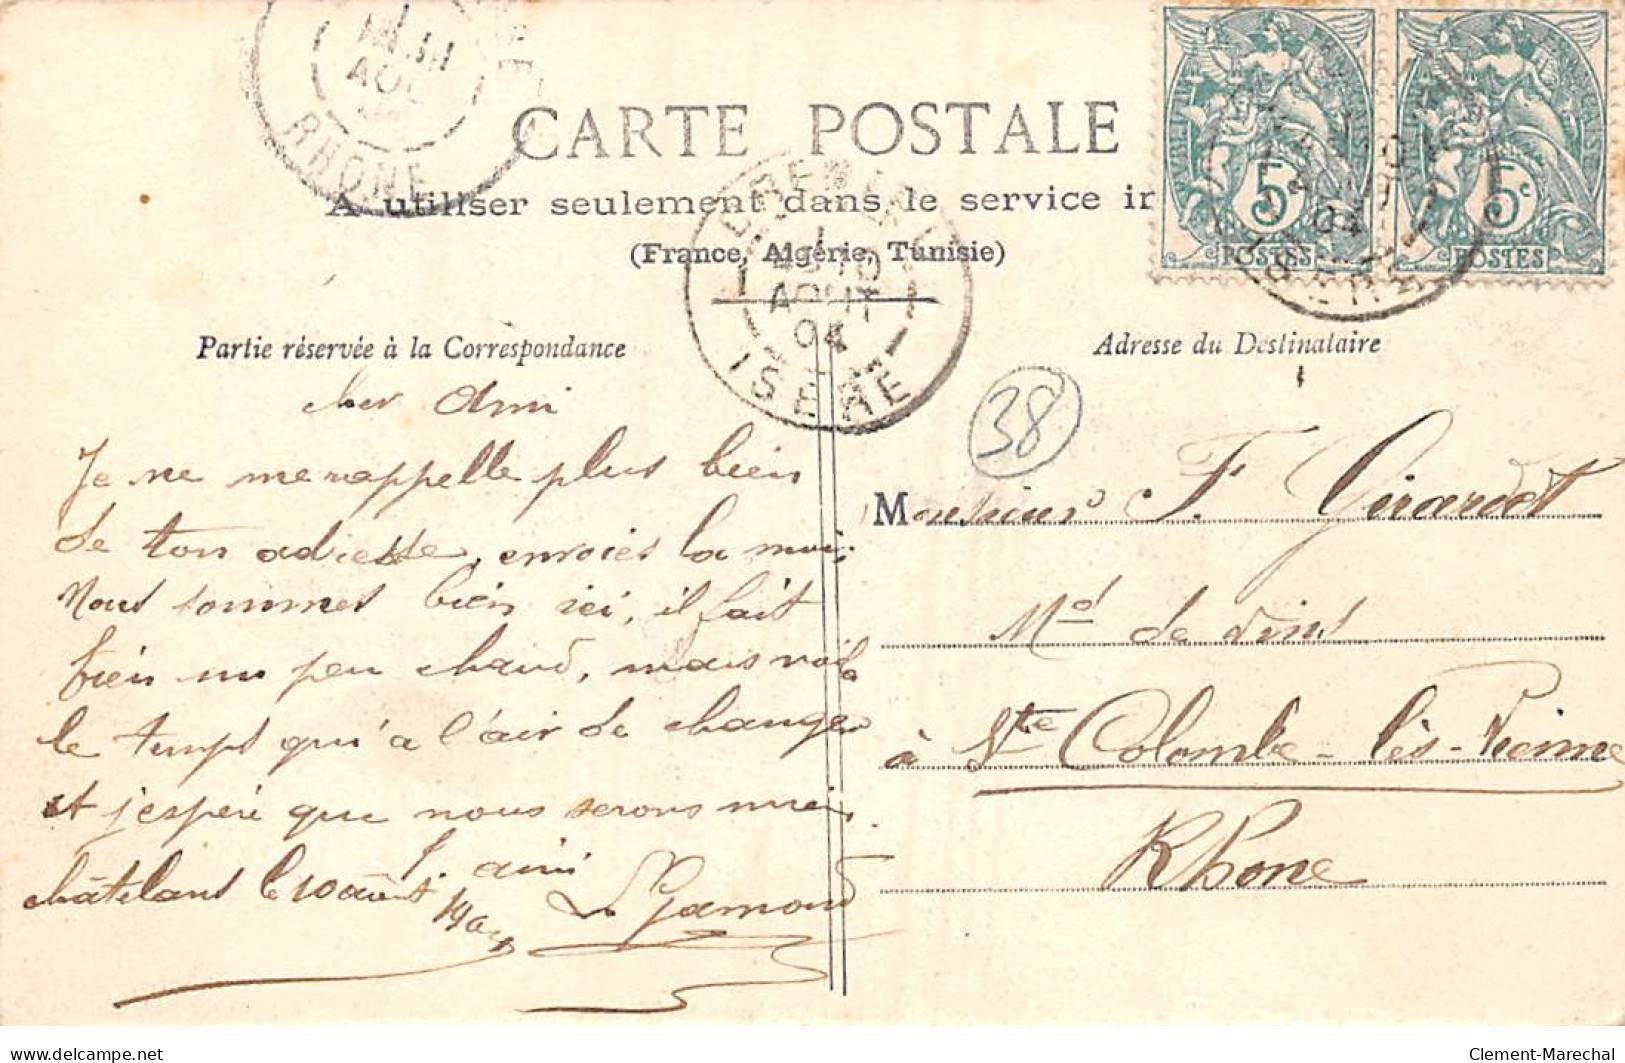 CARTE POSTALE
A utiliser seulement dans le service in
(France, Algérie, Tunisie)
Partie réservée à la Correspondance
Adresse du Destinataire
AOU
RHONE
AOUT
04
ISERE
5
POSTES
5c
POSTES
04
ISERE
38
cher Ami
Je ne me rappelle plus bien
de ton adresse, envoies la moi.
Nous sommes bien ici, il fait
bien un peu chaud, mais voilà
le temps qui a l'air de changer
et j'espère que nous serons mieux
ami
châtelans le 10 août 1904
Monsieur F. Girardot
Md de vins
à Ste Colombe-lès-Vienne
Rhône
delcampe.net
Clement-Marechal